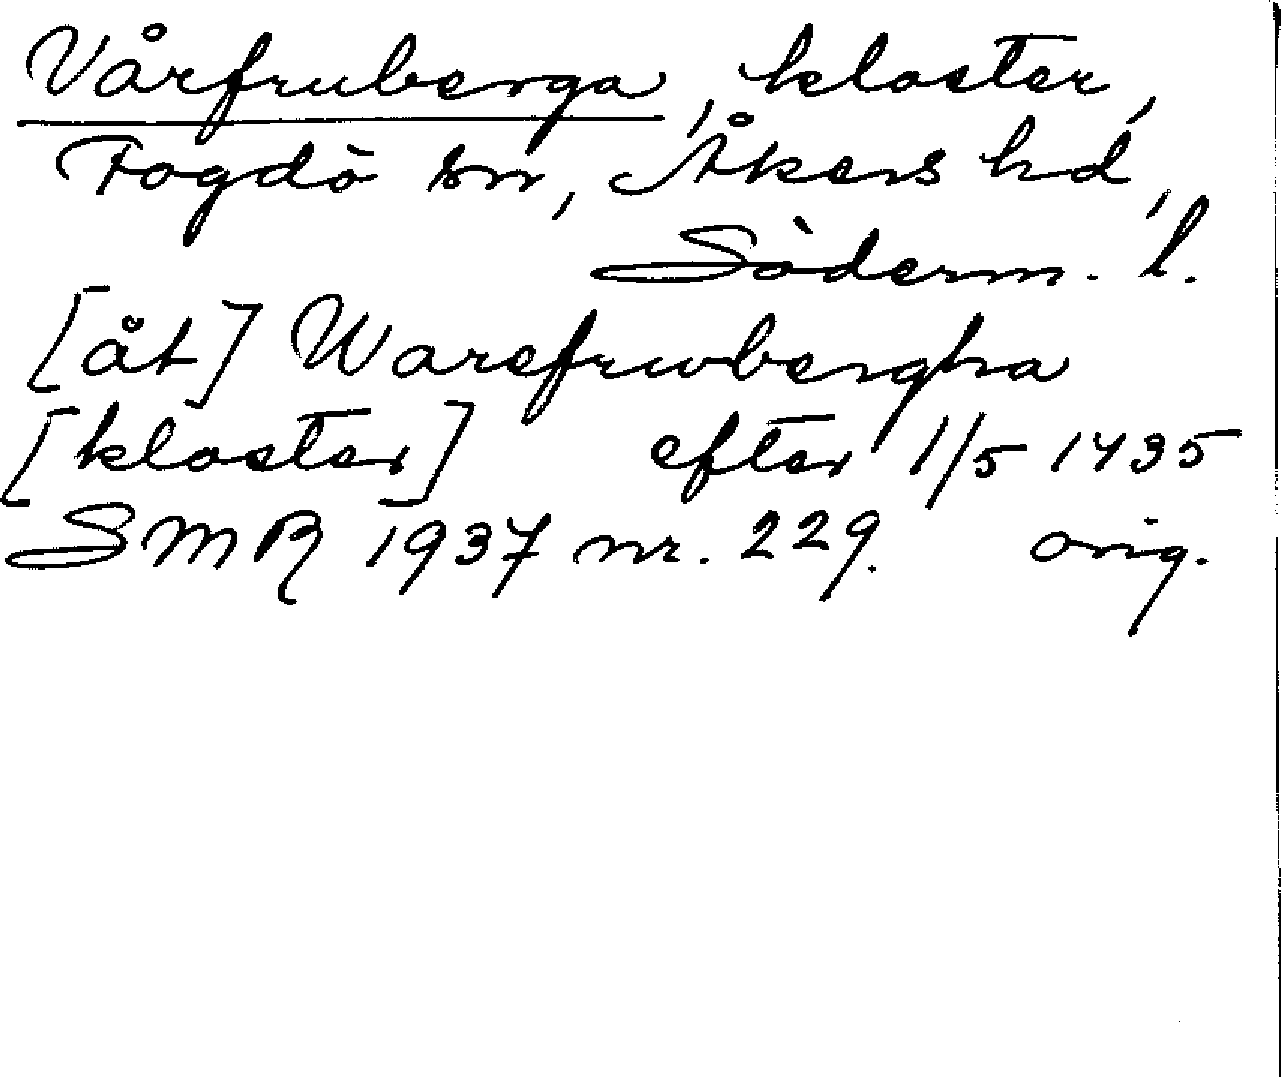 Vårfruberga, kloster,
Fogdö sn, Åkers hd,
Söderm. l.
[åt] Warefrwbergha
[kloster] efter 1/5 1435
SMR 1937 nr. 229. orig.